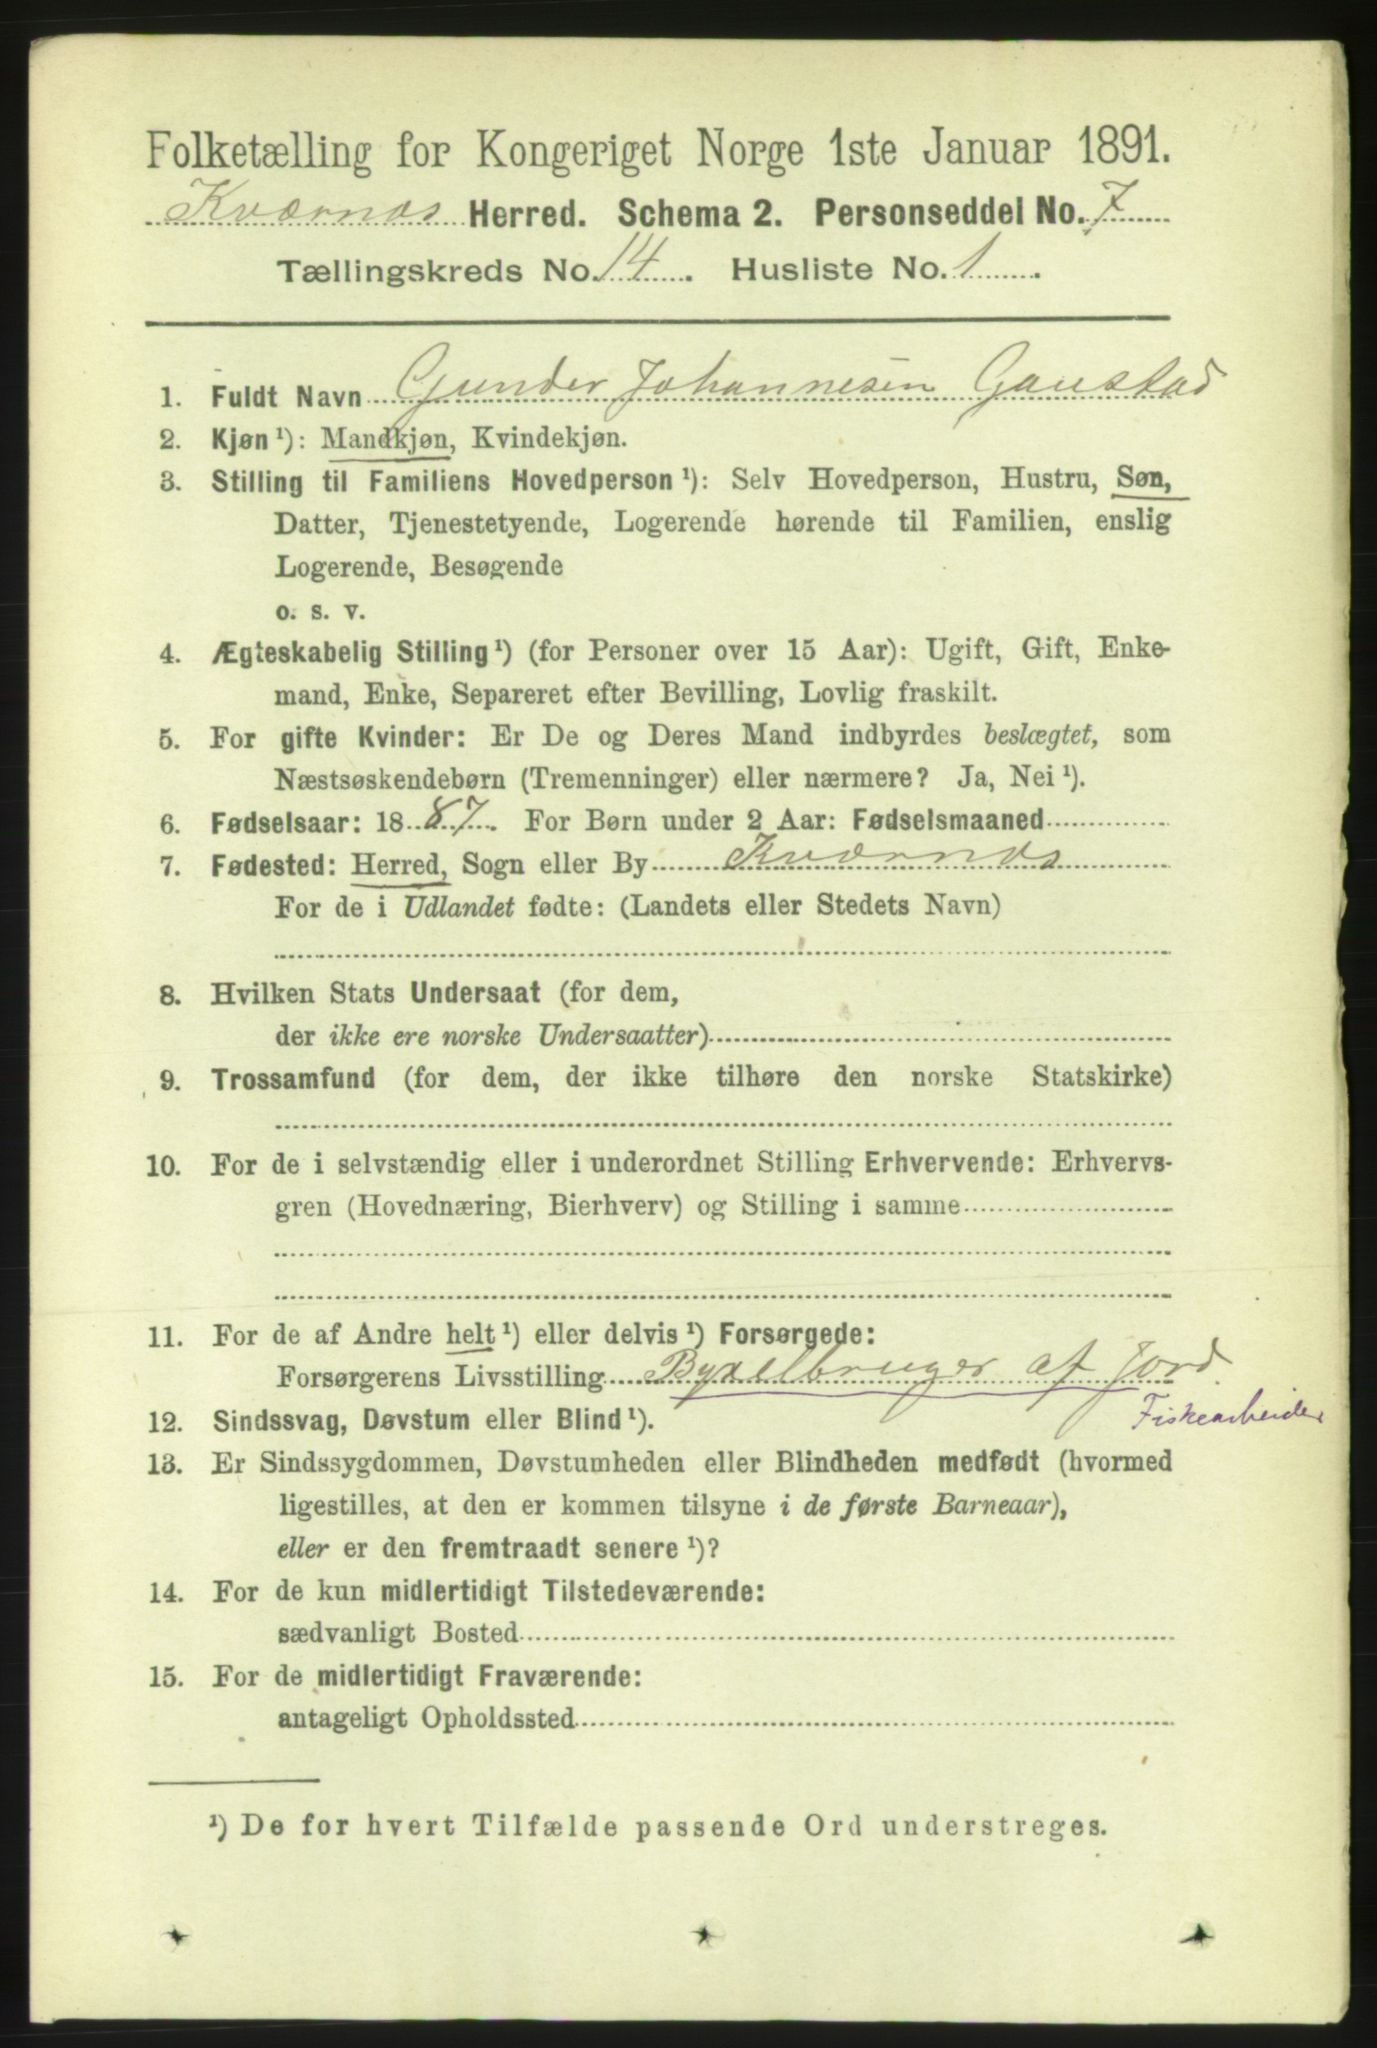 Folketælling for Kongeriget Norge 1ste Januar 1891.
Kværnæs Herred. Schema 2. Personseddel No. 7
Tællingskreds No. 14. Husliste No. 1.
1. Fuldt Navn Gunder Johannesen Gaustad
2. Kjøn ¹): Mandkjøn, Kvindekjøn.
3. Stilling til Familiens Hovedperson ¹): Selv Hovedperson, Hustru, Søn,
Datter, Tjenestetyende, Logerende hørende til Familien, enslig
Logerende, Besøgende
o. s. v.
4. Ægteskabelig Stilling ¹) (for Personer over 15 Aar): Ugift, Gift, Enke-
mand, Enke, Separeret efter Bevilling, Lovlig fraskilt.
5. For gifte Kvinder: Er De og Deres Mand indbyrdes beslægtet, som
Næstsøskendebørn (Tremenninger) eller nærmere? Ja, Nei ¹).
6. Fødselsaar: 1887. For Børn under 2 Aar: Fødselsmaaned
7. Fødested: Herred, Sogn eller By Kværnæs
For de i Udlandet fødte: (Landets eller Stedets Navn)
8. Hvilken Stats Undersaat (for dem,
der ikke ere norske Undersaatter)
9. Trossamfund (for dem, der ikke tilhøre den norske Statskirke)
10. For de i selvstændig eller i underordnet Stilling Erhvervende: Erhvervs-
gren (Hovednæring, Bierhverv) og Stilling i samme
11. For de af Andre helt ¹) eller delvis ¹) Forsørgede:
Forsørgerens Livsstilling Byxelbruger af Jord
Fiskearbeider
12. Sindssvag, Døvstum eller Blind ¹).
13. Er Sindssygdommen, Døvstumheden eller Blindheden medfødt (hvormed
ligestilles, at den er kommen tilsyne i de første Barneaar),
eller er den fremtraadt senere ¹)?
14. For de kun midlertidigt Tilstedeværende:
sædvanligt Bosted
15. For de midlertidigt Fraværende:
antageligt Opholdssted
¹) De for hvert Tilfælde passende Ord understreges.